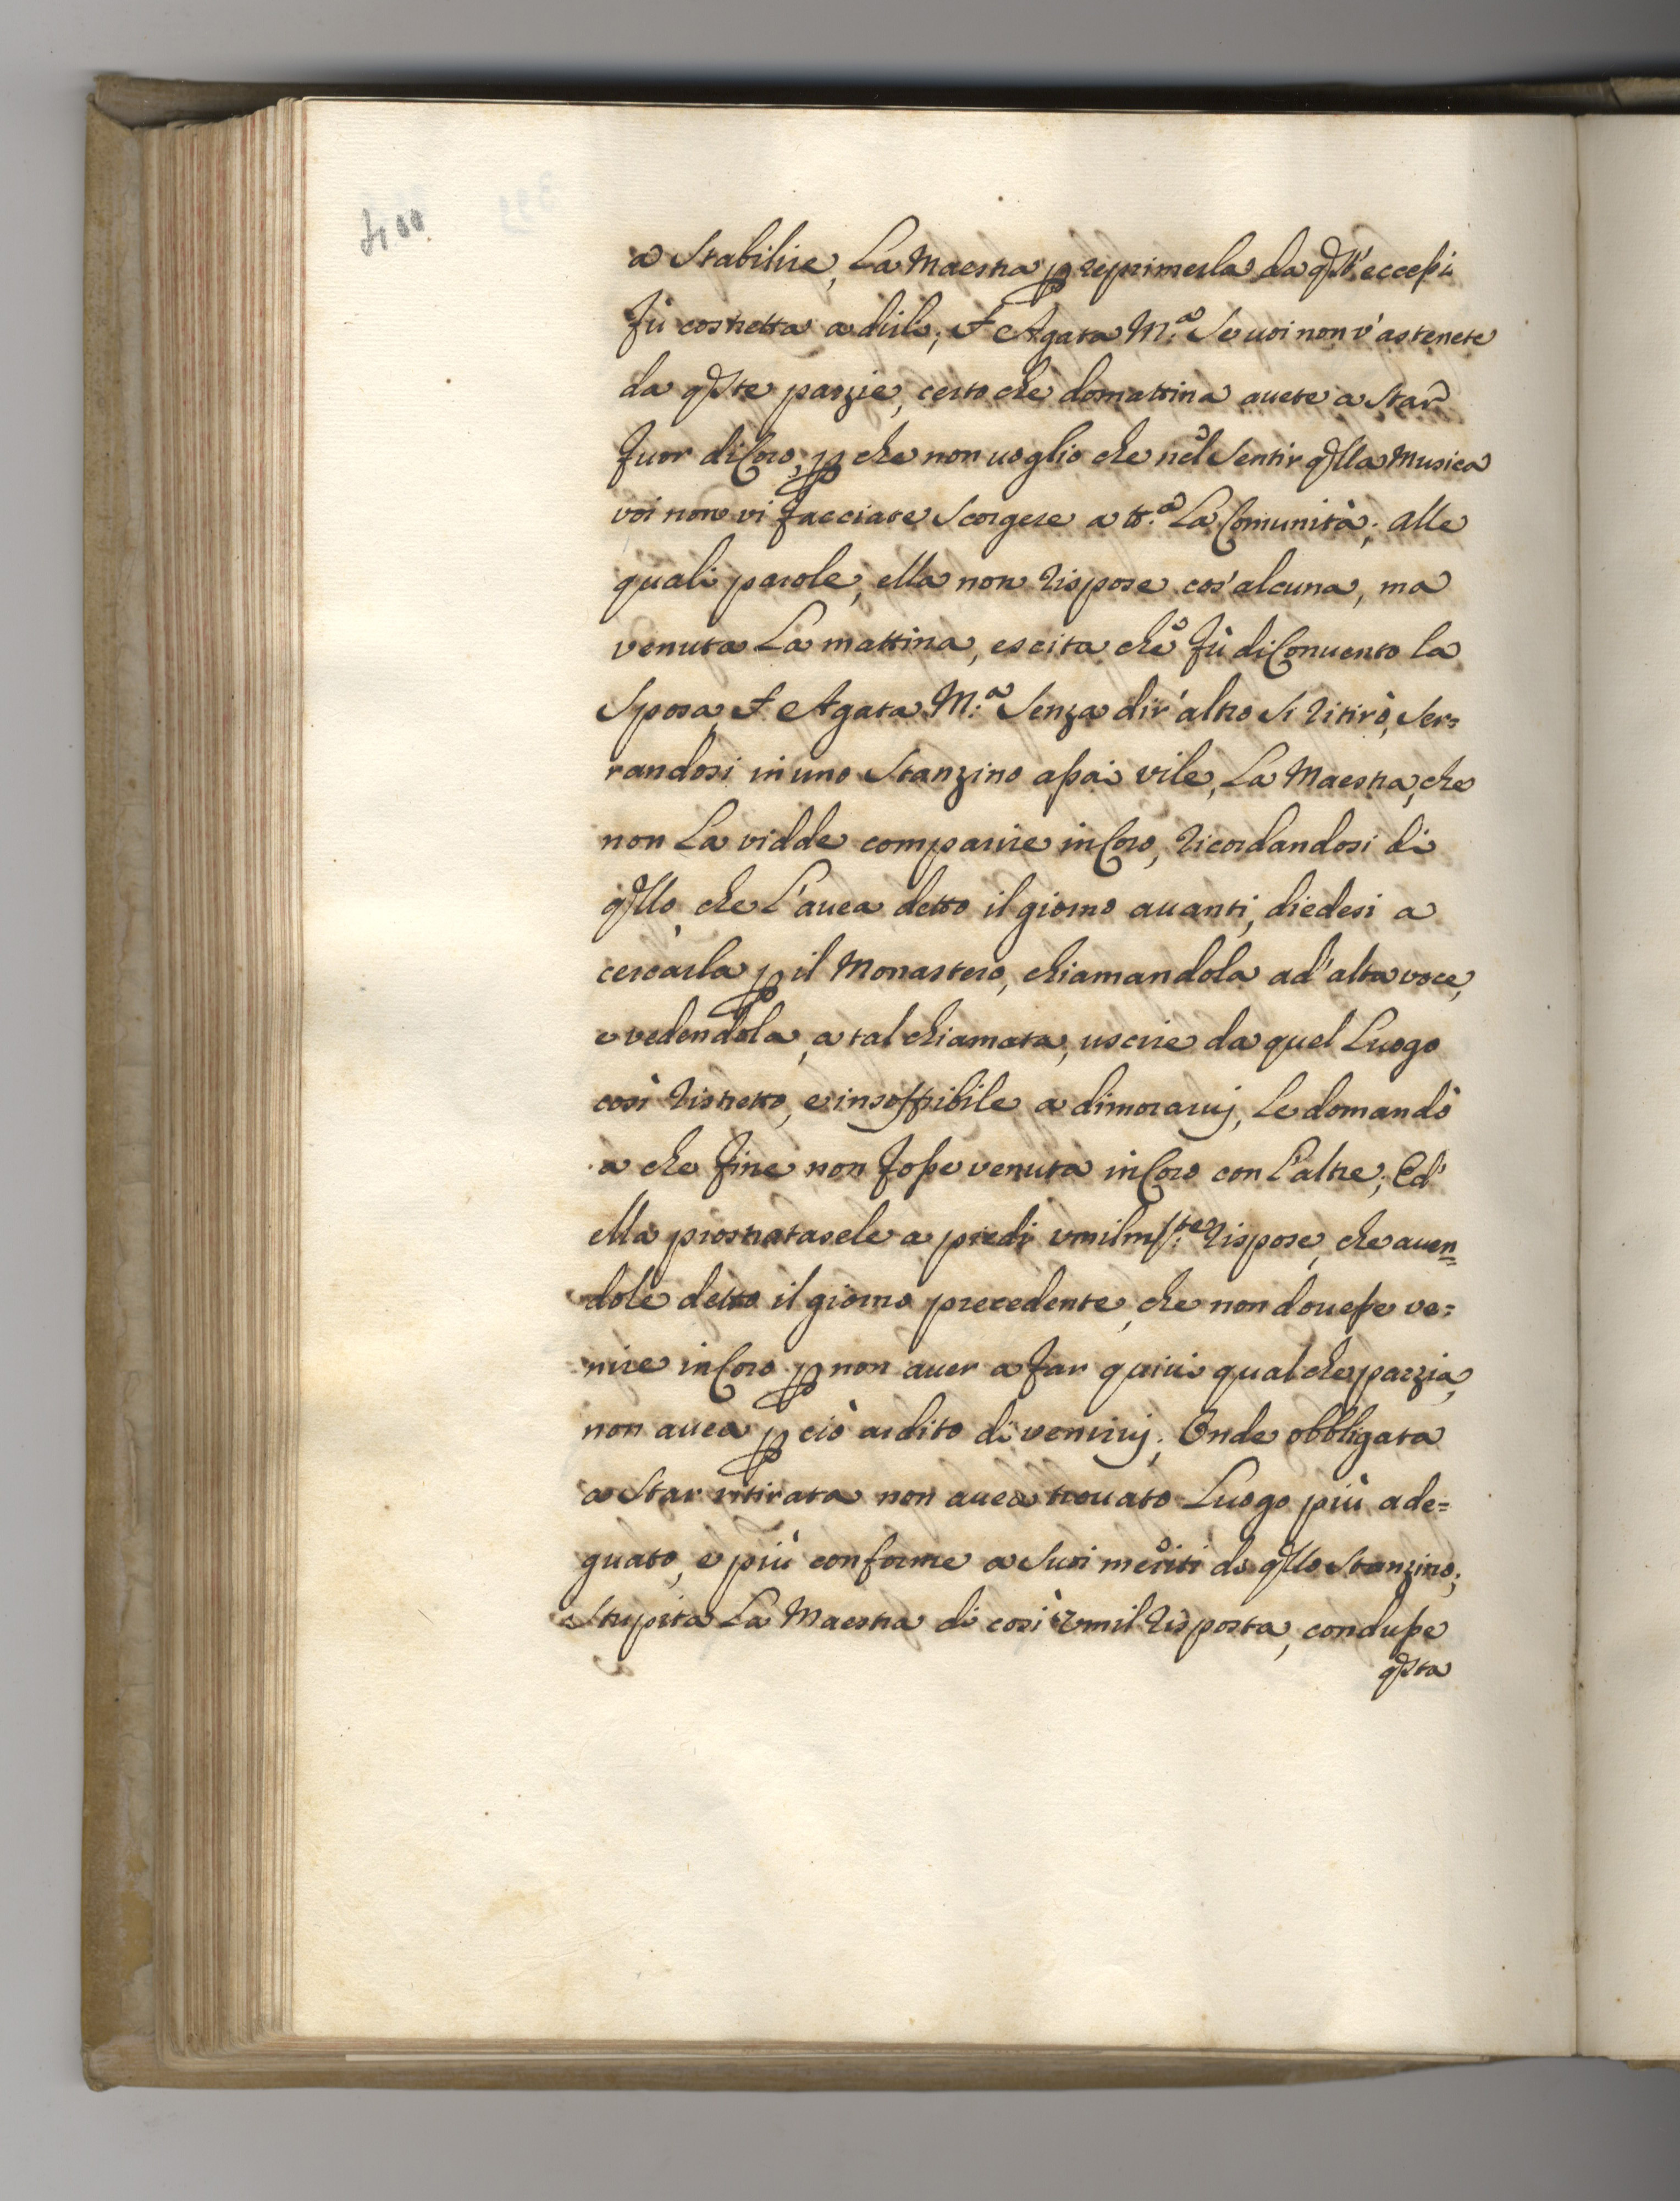 400
a Stabilire, La Maestra p reprimerla da qst'eccessi
fù costretta a dirle; S. Agata M.a Se uoi non v'astenete
da qste pazzie, certo che domattina auete a Star
fuor di Coro; p che non uoglio che nel Sentir qlla Musica
voi non vi facciate Scorgere a tt.a La Comunità; alle
quali parole, ella non rispose cos'alcuna, ma
venuta La mattina, escita che fù di Conuento la
Sposa, S. Agata M.a Senza dir'altro Si ritirò, Ser=
randosi in uno Stanzino assai vile, La Maestra, che
non La vidde comparire in Coro, ricordandosi di
qllo che L'auea detto il giorno auanti, diedesi a
cercarla p il Monastero, chiamandola ad'alta voce,
e vedendola, a tal chiamata, uscire da quel Luogo
così ristretto, e insoffribile a dimorarui, Le domandò
a che fine non fosse venuta in Coro con L'altre; Ed'
ella prostratasele a piedi vmilm.te rispose, che auen=
dole detto il giorno precedente, che non douesse ve=
nire in Coro p non auer a far quiui qualche pazzia,
non auea p ciò ardito di venirui; Onde obbligata
a Star ritirata non auea trouato Luogo più ade=
guato, e più conforme a Suoi meriti di qllo Stanzino;
Stupita La Maestra di così vmil risposta, condusse
qsta